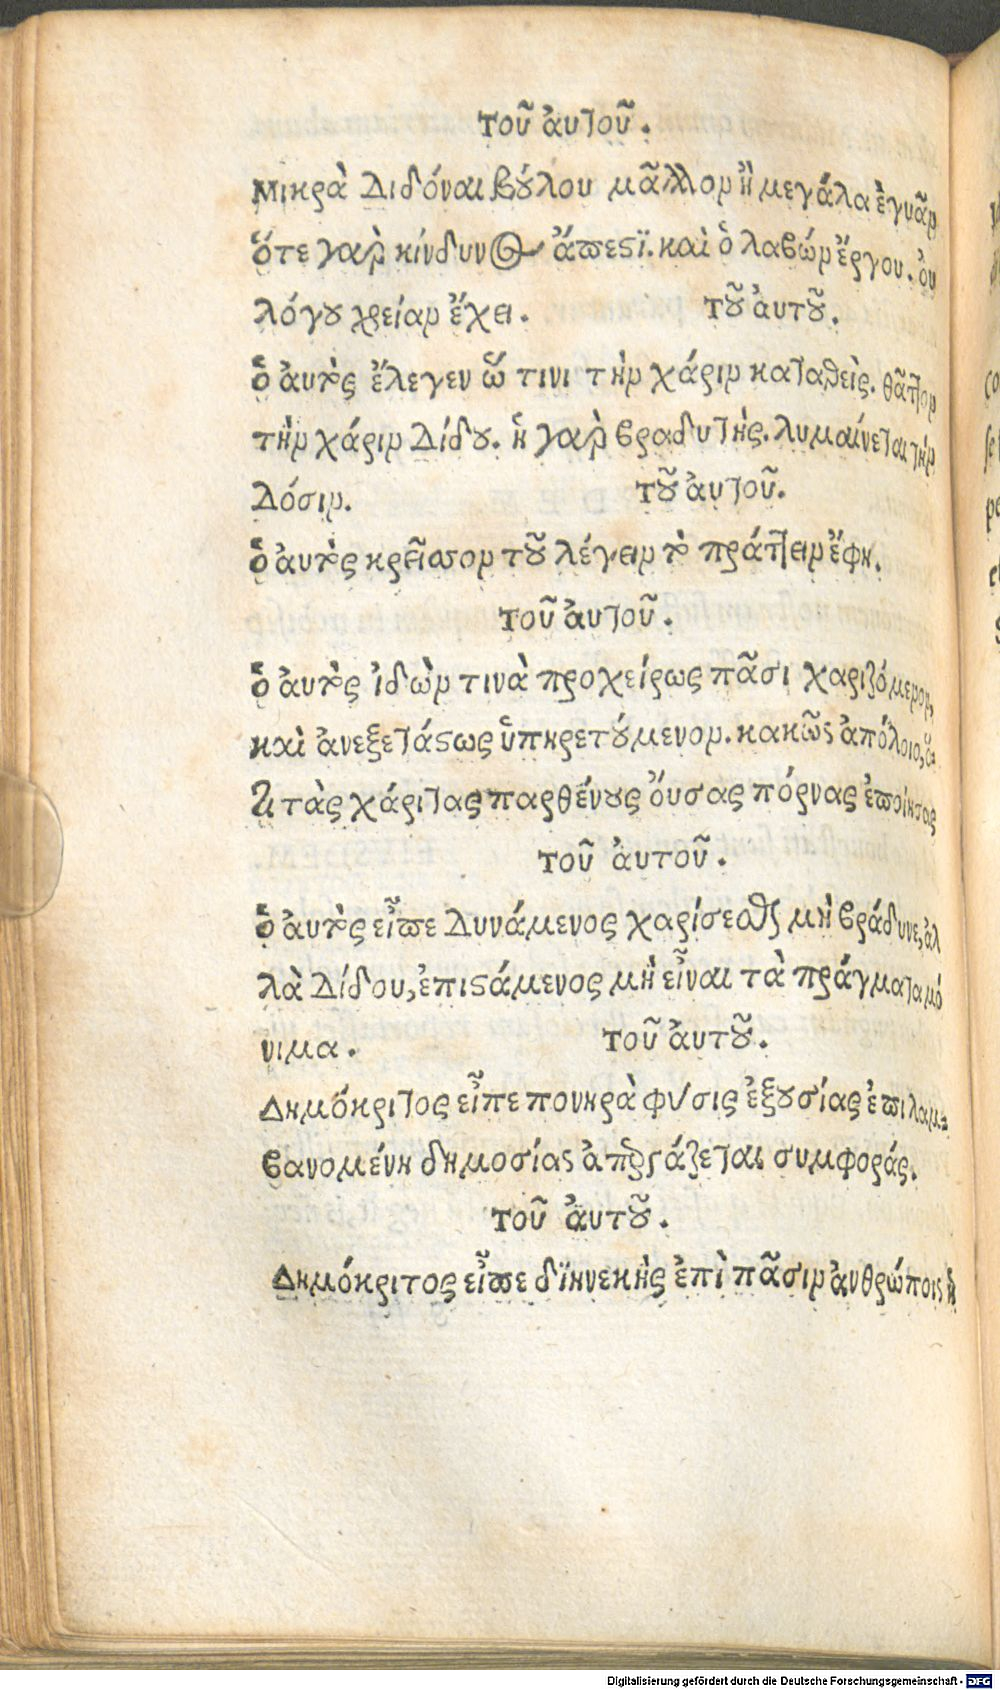 τοῦ ἀυτοῦ.
Μικρὰ Διδόναι βούλου μᾶλλον ἢ μεγάλα ἐγγυᾶν
ὅτε γὰρ κίνδυνος ἄπεστι. καὶ ὁ λαβὼν ἔργου. οὐ
λόγου χρείαν ἔχει. τοῦ ἀυτοῦ.
ὁ ἀυτὸς ἔλεγεν ὥ τινι τὴν χάριν καταθεὶς. θᾶττον
τὴν χάριν Δίδου. ἡ γὰρ βραδυτὴς. λυμαίνεται τὴν
Δόσιν. τοῦ ἀυτοῦ.
ὁ ἀυτὸς κρεῖσσον τοῦ λέγειν τὸ πράττειν ἔφη.
τοῦ ἀυτοῦ.
ὁ ἀυτὸς ἰδὼν τινὰ προχείρως πᾶσι χαριζόμενον,
καὶ ἀνεξετάστως ὑπηρετούμενον. κακῶς ἀπόλοιο, ὅ-
τι τὰς χάριτας παρθένους ὄυσας πόρνας ἐποίησας
τοῦ ἀυτοῦ.
ὁ ἀυτὸς εἶπε Δυνάμενος χαρίσεσθαι μὴ βράδυνε, ἀλ
λὰ Δίδου, ἐπιστάμενος μὴ εἶναι τὰ πράγματα μό
νιμα. τοῦ ἀυτοῦ.
Δημόκριτος εἶπε πονηρὰ φύσις ἐξουσίας ἐπιλαμ-
βανομένη δημοσίας ἀπεργάζεται συμφοράς.
τοῦ ἀυτοῦ.
Δημόκριτος εἶπε διηνεκὴς ἐπὶ πᾶσιν ἀνθρώποις ἡ
Digitalisierung gefördert durch die Deutsche Forschungsgemeinschaft - DFG